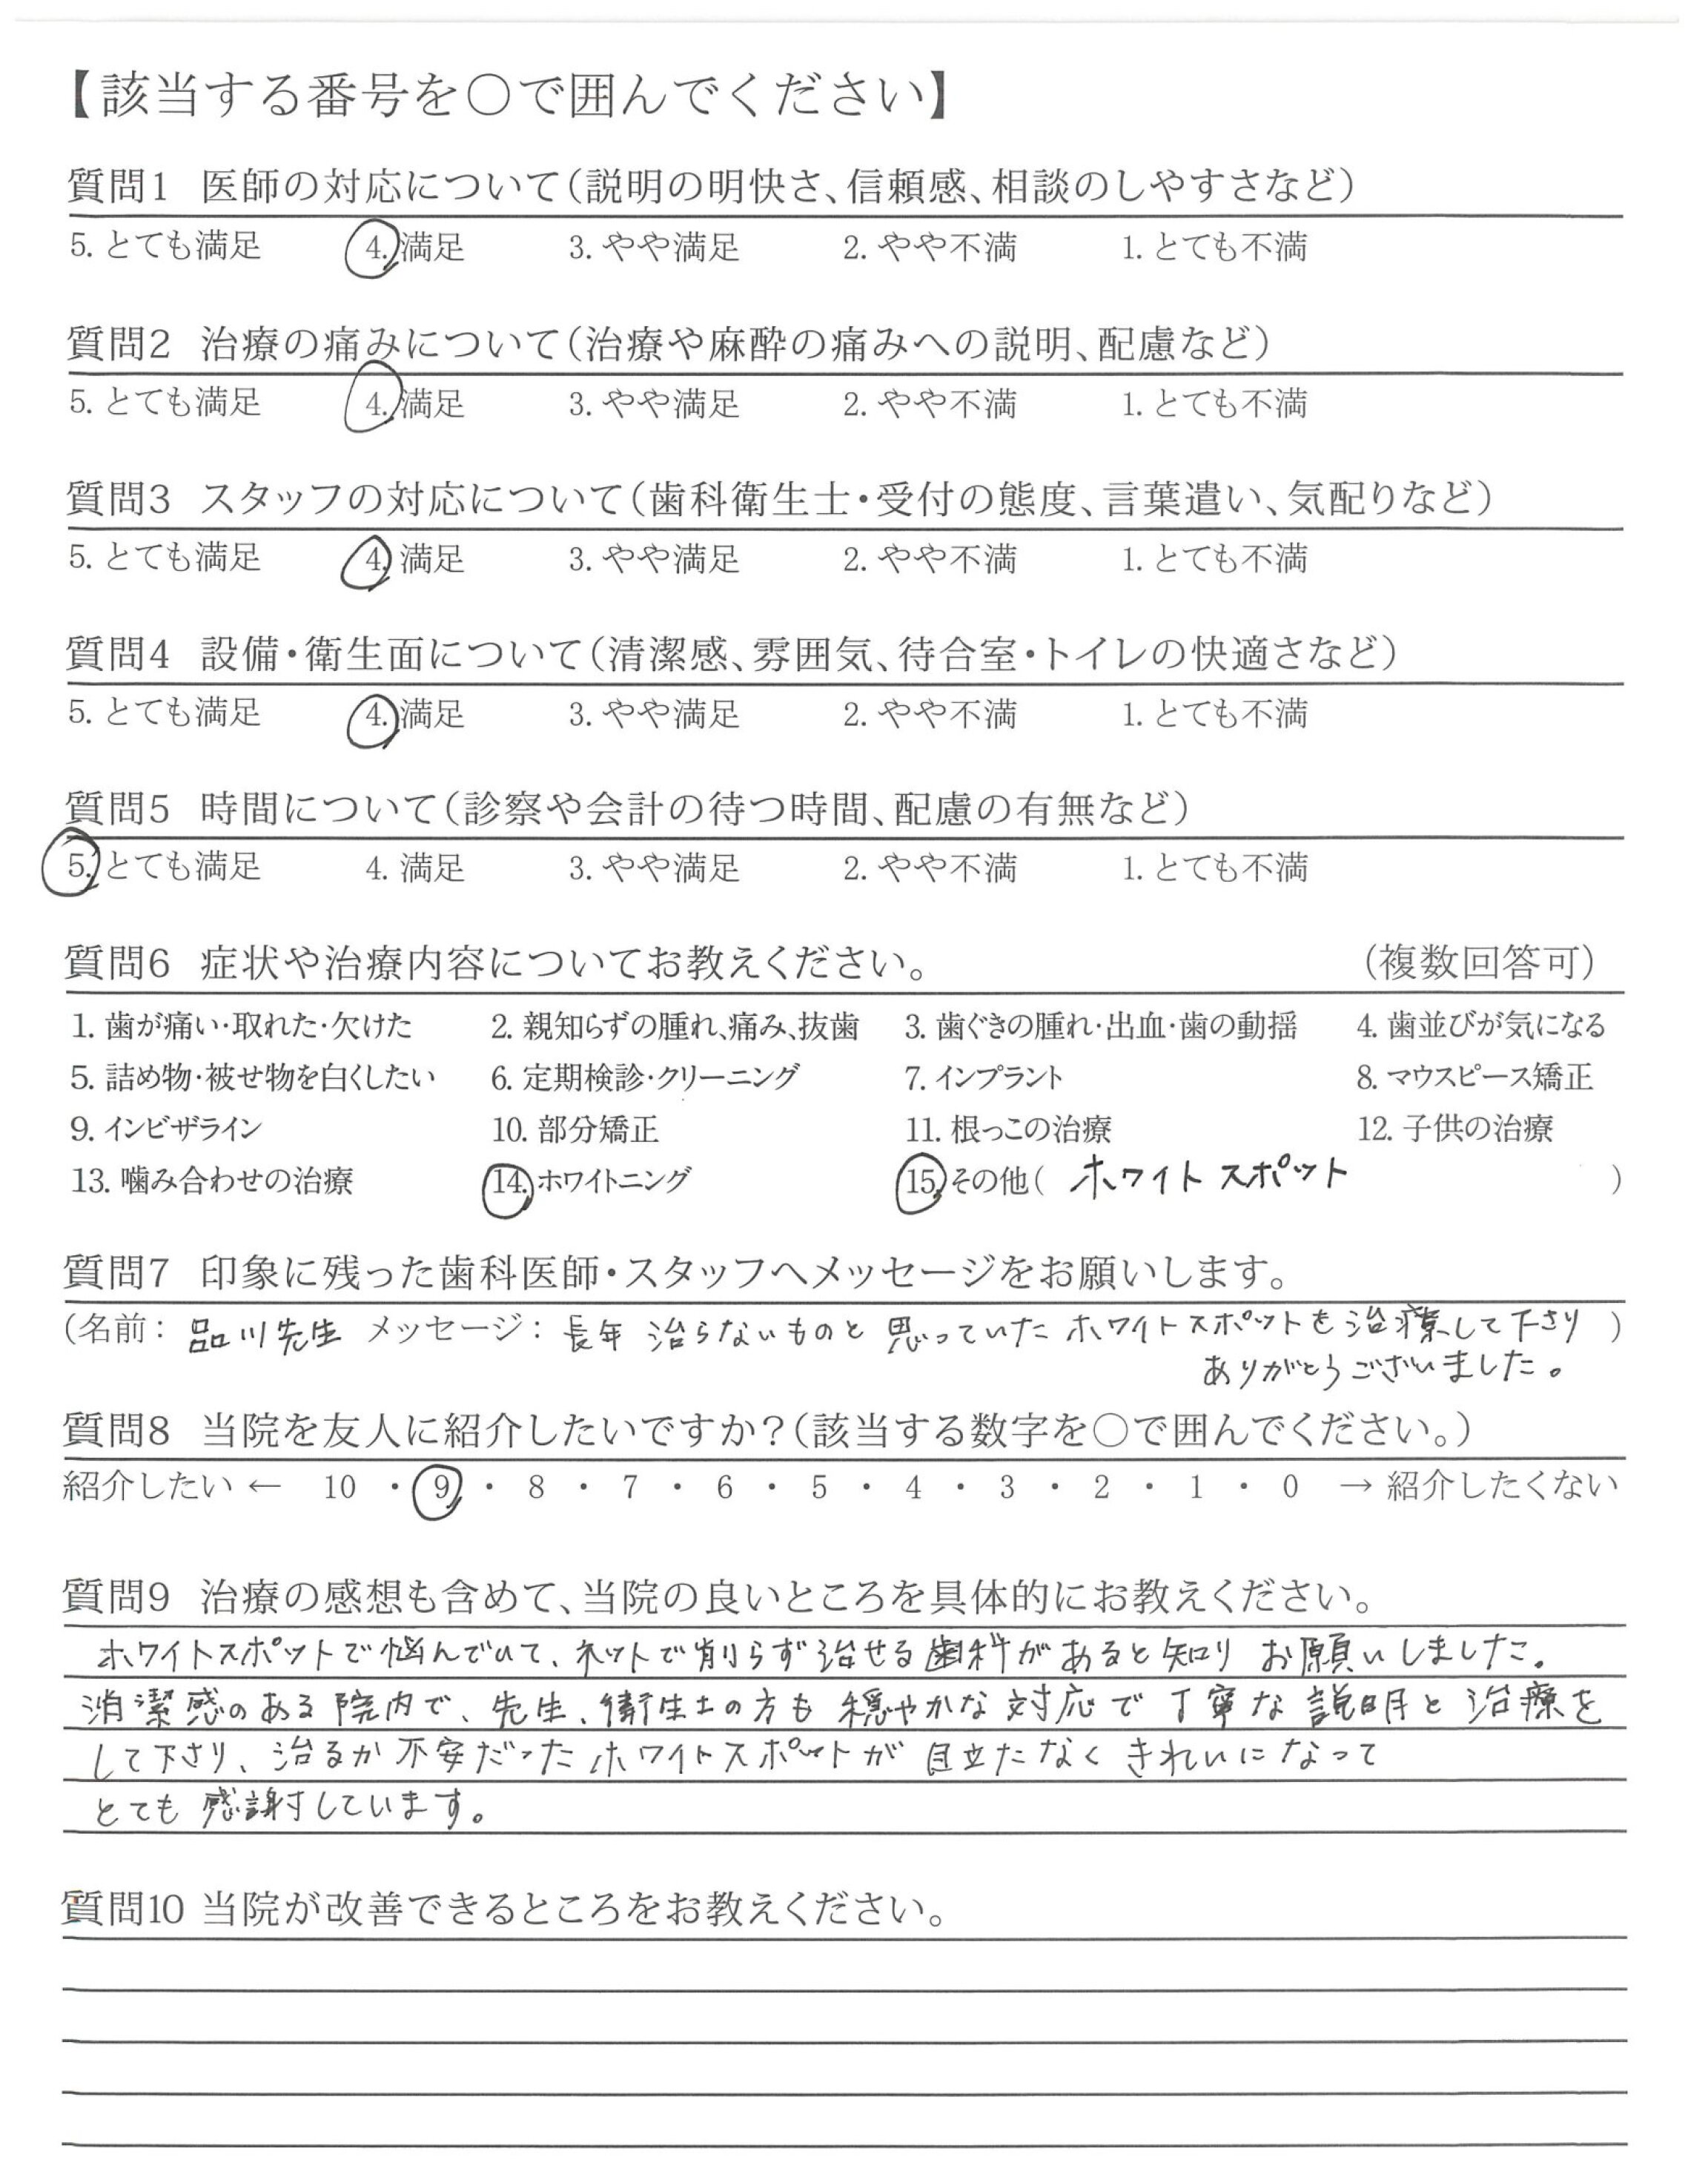 【該当する番号を○で囲んでください】
質問1 医師の対応について(説明の明快さ、信頼感、相談のしやすさなど)
5. とても満足 4. 満足 3. やや満足 2. やや不満 1. とても不満
質問2 治療の痛みについて(治療や麻酔の痛みへの説明、配慮など)
5. とても満足 4. 満足 3. やや満足 2. やや不満 1. とても不満
質問3 スタッフの対応について(歯科衛生士・受付の態度、言葉遣い、気配りなど)
5. とても満足 4. 満足 3. やや満足 2. やや不満 1. とても不満
質問4 設備・衛生面について(清潔感、雰囲気、待合室・トイレの快適さなど)
5. とても満足 4. 満足 3. やや満足 2. やや不満 1. とても不満
質問5 時間について(診察や会計の待つ時間、配慮の有無など)
5. とても満足 4. 満足 3. やや満足 2. やや不満 1. とても不満
質問6 症状や治療内容についてお教えください。 (複数回答可)
1. 歯が痛い・取れた・欠けた 2. 親知らずの腫れ、痛み、抜歯 3. 歯ぐきの腫れ・出血・歯の動揺 4. 歯並びが気になる
5. 詰め物・被せ物を白くしたい 6. 定期検診・クリーニング 7. インプラント 8. マウスピース矯正
9. インビザライン 10. 部分矯正 11. 根っこの治療 12. 子供の治療
13. 噛み合わせの治療 14. ホワイトニング 15. その他( ホワイトスポット )
質問7 印象に残った歯科医師・スタッフへメッセージをお願いします。
(名前: 品川先生 メッセージ: 長年 治らないものと 思っていた ホワイトスポットを治療して下さり )
ありがとうございました。
質問8 当院を友人に紹介したいですか?(該当する数字を○で囲んでください。)
紹介したい ← 10 ・ 9 ・ 8 ・ 7 ・ 6 ・ 5 ・ 4 ・ 3 ・ 2 ・ 1 ・ 0 → 紹介したくない
質問9 治療の感想も含めて、当院の良いところを具体的にお教えください。
ホワイトスポットで悩んでいて、ネットで削らず治せる歯科があると知り お願いしました。
清潔感のある院内で、先生、衛生士の方も 穏やかな対応で 丁寧な説明と治療を
して下さり、治るか不安だったホワイトスポットが 目立たなく きれいになって
とても感謝しています。
質問10 当院が改善できるところをお教えください。